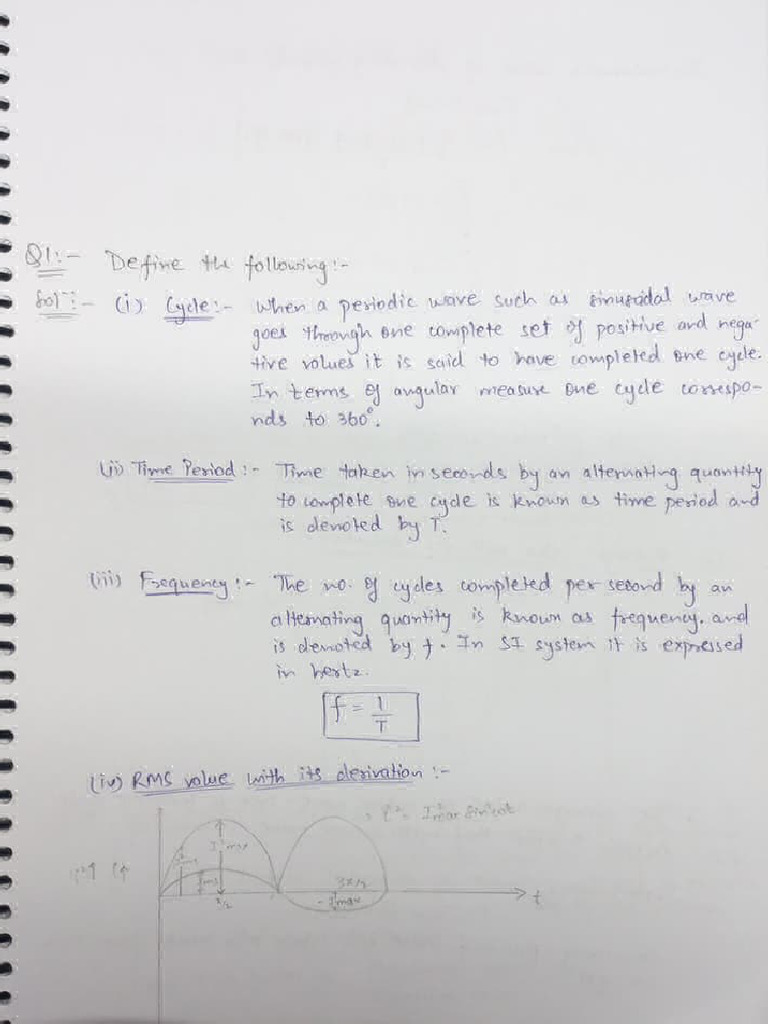 Q1:- Define the following:-
Solⁿ:- (i) Cycle:- When a periodic wave such as sinusoidal wave
goes through one complete set of positive and nega-
tive values it is said to have completed one cycle.
In terms of angular measure one cycle correspo-
nds to 360°.
(ii) Time Period:- Time taken in seconds by an alternating quantity
to complete one cycle is known as time period and
is denoted by T.
(iii) Frequency:- The no. of cycles completed per second by an
alternating quantity is known as frequency. and
is denoted by f. In SI system it is expressed
in hertz.
f = 1/T
(iv) RMS value with its derivation :-
i² = I²max sin²ωt
I²max
3π/2
π/2
t